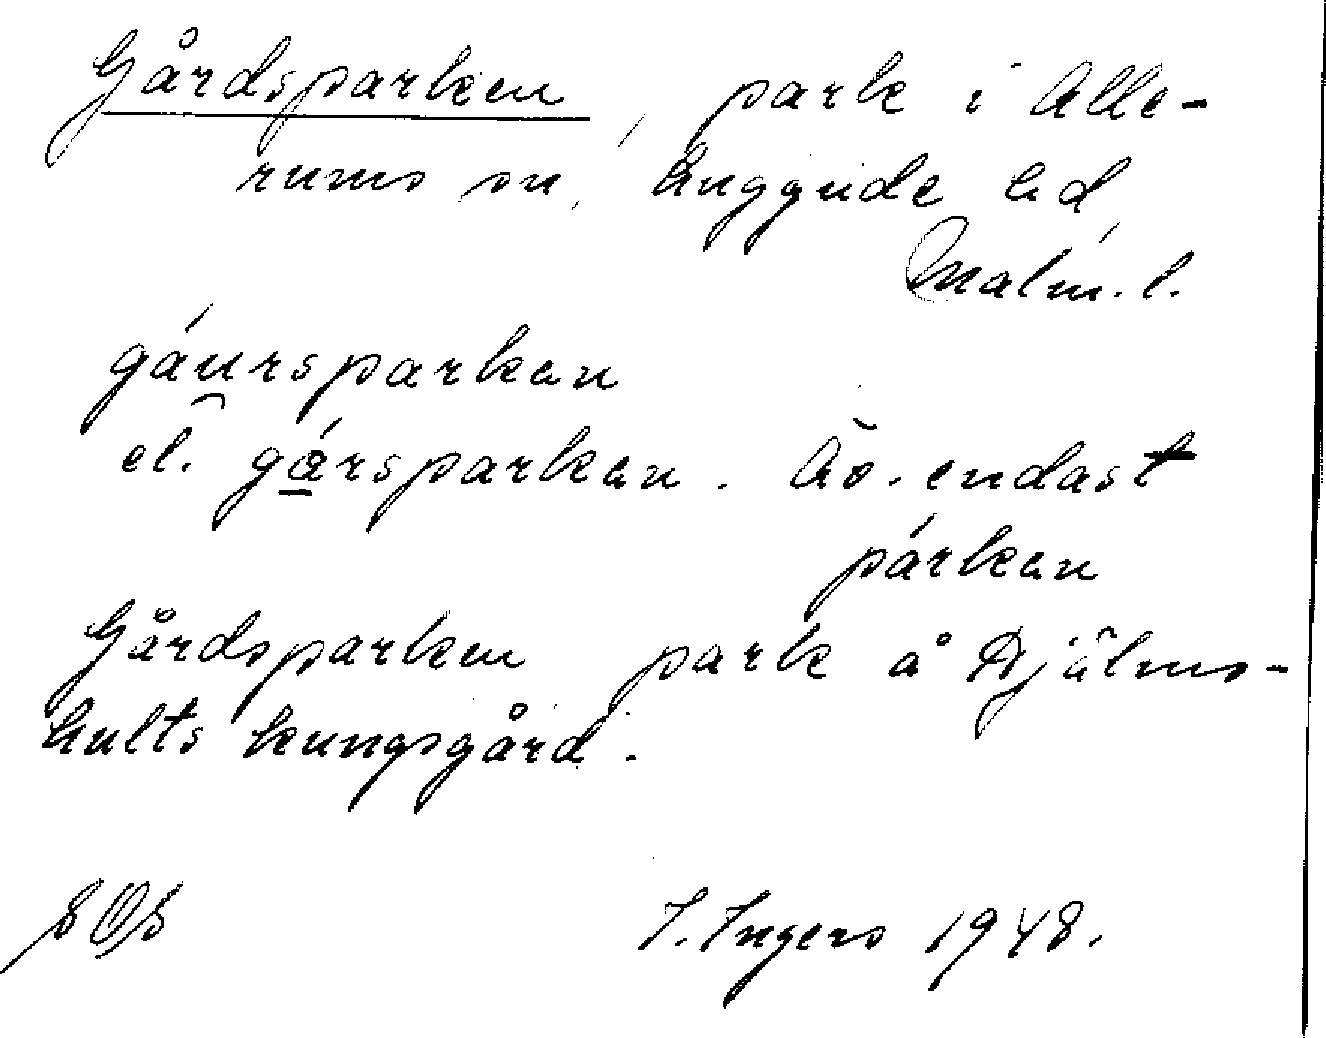 Gårdsparken, park i Alle-
rums sn, Luggude hd,
Malm. l.
gáursparkan
el. gársparkan. Äv. endast
párkan
Gårdsparken park å Hjälms-
hults kungsgård.
SOS I. Ingers 1948.